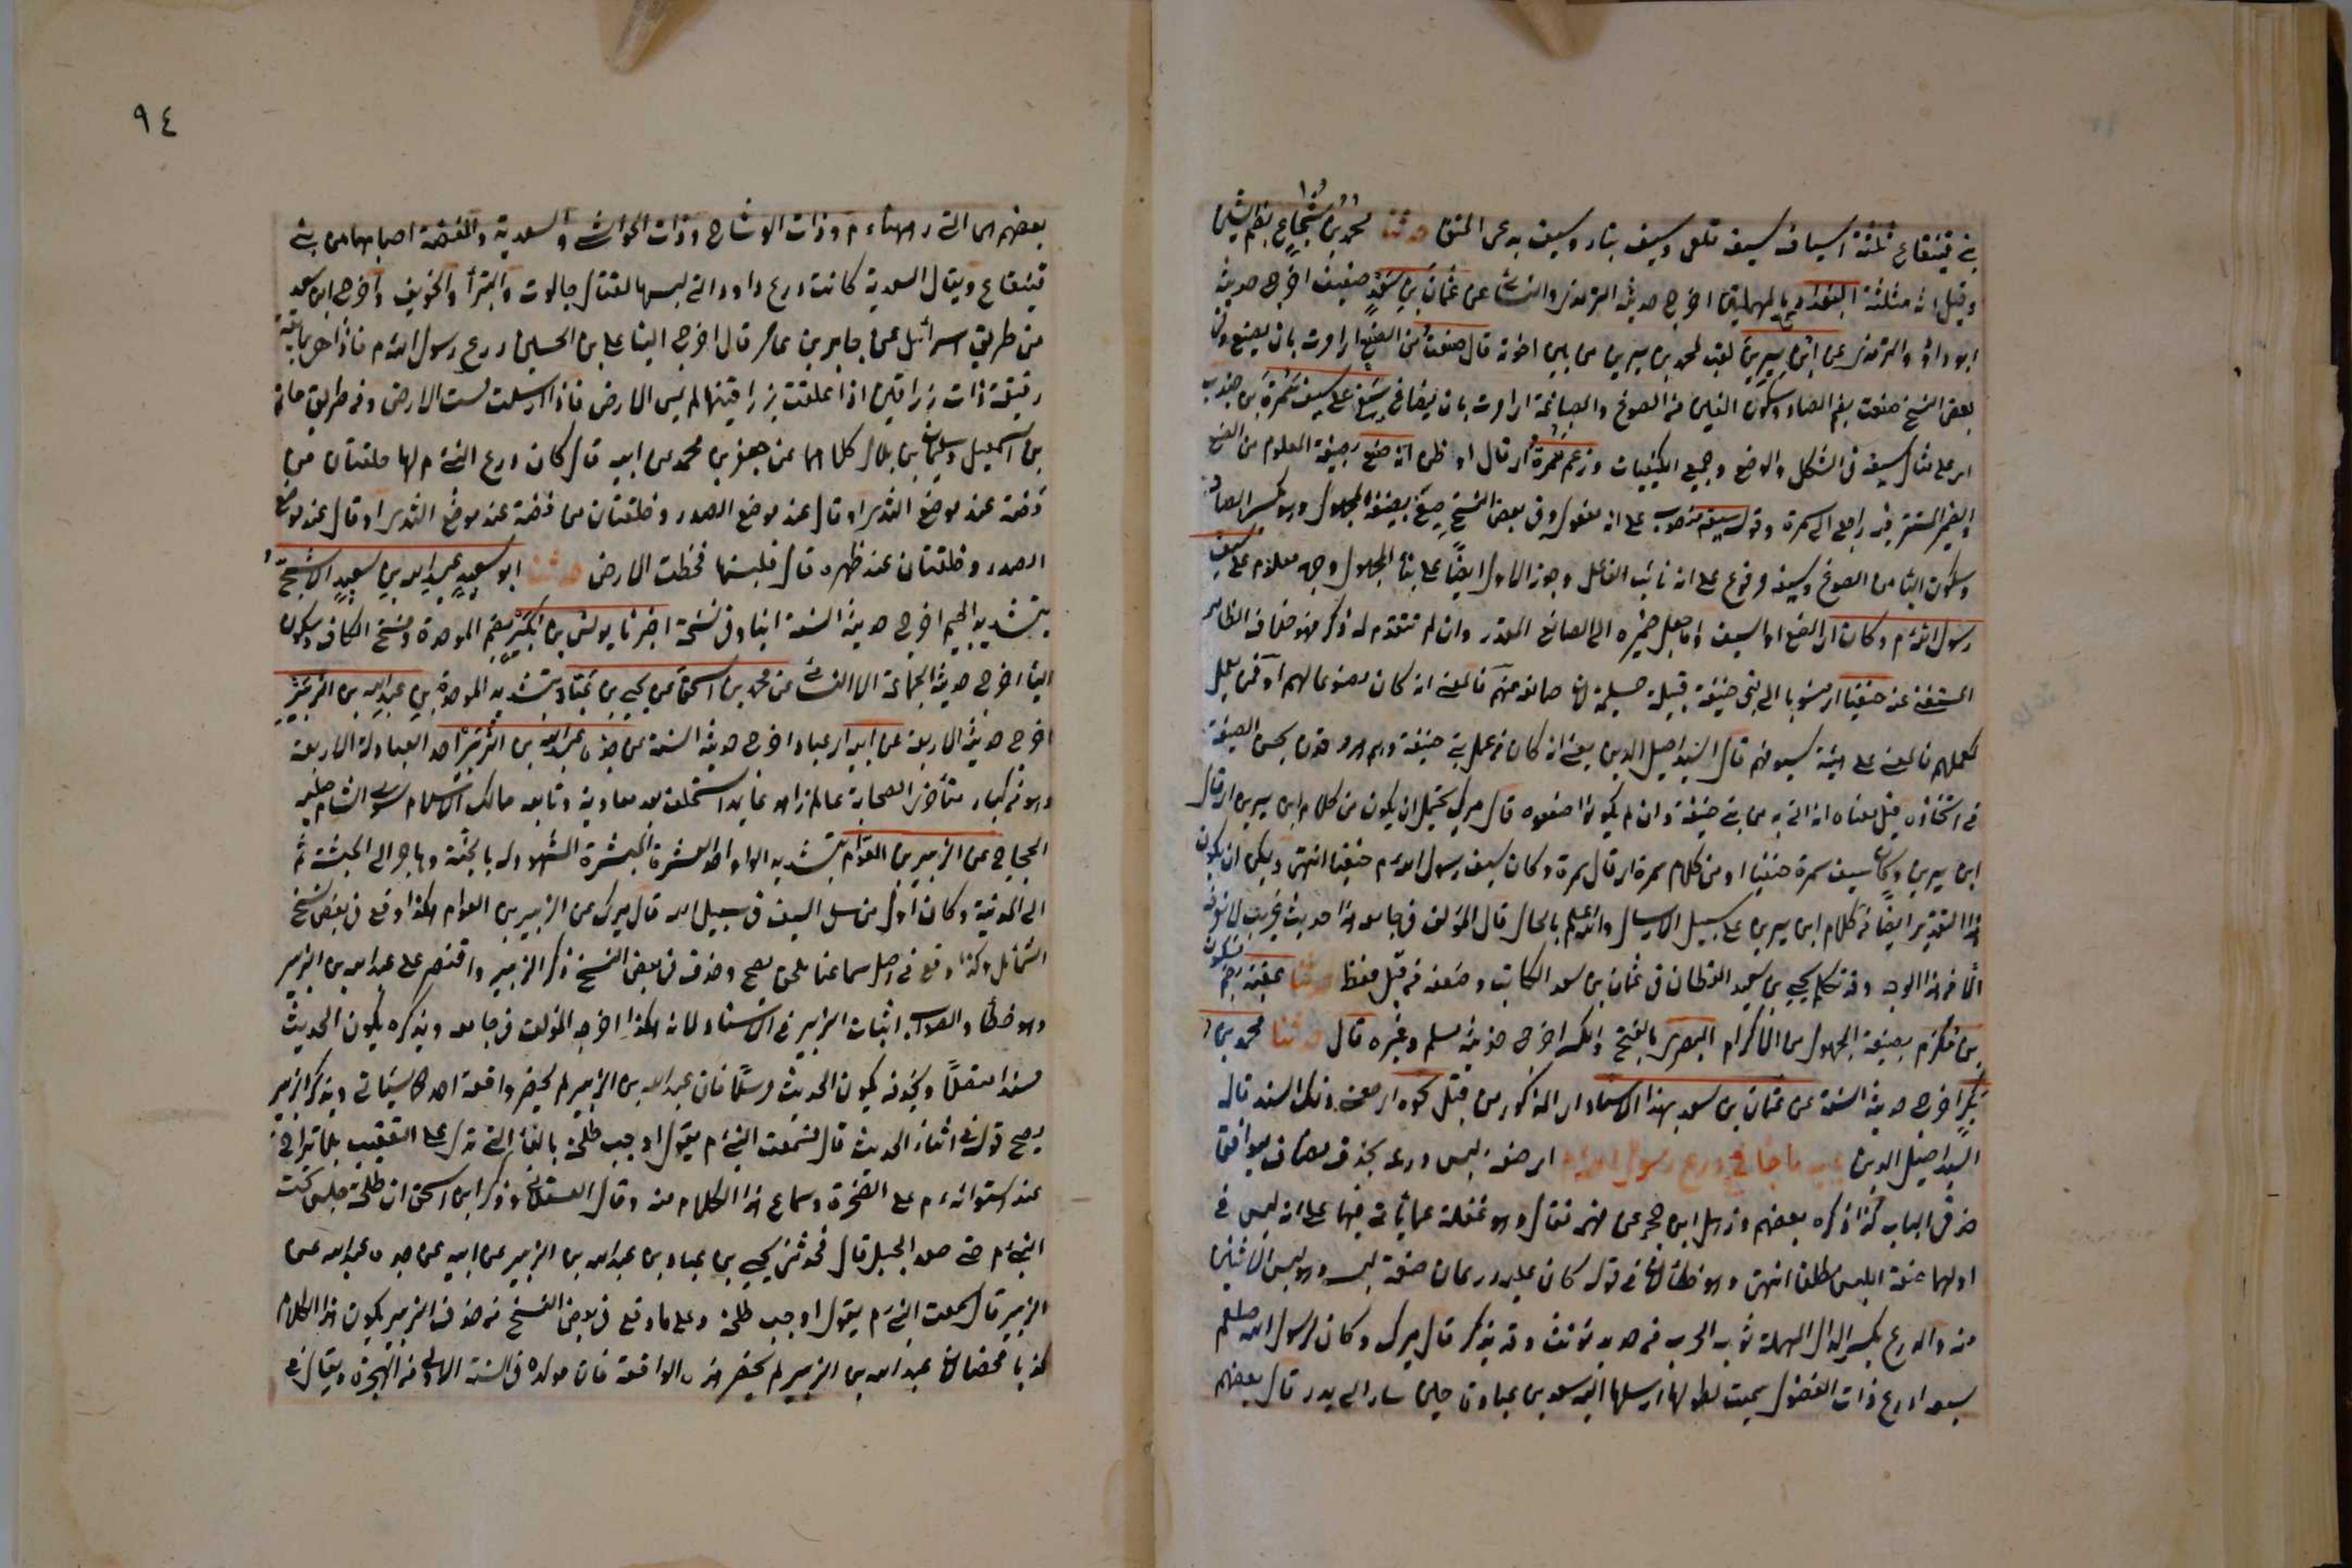 بني قينقاع ثلثة اسياف سيف قلعي وسيف بتار وسيف يدعى الحتف حدثنا محمد بن شجاع بضم الشين
وقيل انه مثلثة البغدادي بالمهملتين اخرج حديثه الترمذي والنسائي عن عثمان بن سعد ضعيف اخرج حديثه
ابو داود والترمذي عن ابن سيرين لقب لمحمد بن سيرين من بين اخوته قال صنعت من الصنع اي امرت بان يصنع وفي
بعض النسخ صنعت بضم الصاد وسكون الغين من الصوغ والصياغة اي امرت بان يصاغ سيفي على سيف سمرة بن جندب
اي على مثال سيفه في الشكل والوضع وجميع الكيفيات وزعم سمرة اي قال او ظن انه صنع بصيغة المعلوم من الصنع
والضمير المستتر فيه راجع الى سمرة وقوله سيفه منصوب على انه مفعول وفي بعض النسخ صيغ بصيغة المجهول وبكسر الصاد
وسكون اليا من الصوغ وسيفه مرفوع على انه نائب الفاعل وجوز الاول ايضا على بناء المجهول وجه معلوم على سيف
رسول الله م وكان اي الصنع او السيف واما جعل ضميره الى الصانع المقدر وان لم يتقدم له ذكر فهو خلاف الظاهر
المستغنى عنه حنفيا اي منسوبا الى بني حنيفة قبيلة مسيلمة لان صانعه منهم فالمعنى انه كان مصنوعا لهم او ممن يعمل
كعملهم فالمعنى على هيئة سيوفهم قال السيد اصيل الدين يعني انه كان من عمل بني حنيفة وهم معروفون بحسن الصيغة
في اتخاذه قيل معناه انه اتي به من بني حنيفة وان لم يكونوا صنعوه قال ميرك يحتمل ان يكون من كلام ابن سيرين اي قال
ابن سيرين وكان سيف سمرة حنفيا او من كلام سمرة اي قال سمرة وكان سيف رسول الله م حنفيا انتهى ويمكن ان يكون
هذا التقدير ايضا من كلام ابن سيرين على سبيل الارسال والله اعلم بالحال قال المؤلف في جامعه هذا حديث غريب لا نعرفه
الا من هذا الوجه وقد تكلم يحيى بن سعيد القطان في عثمان بن سعد الكاتب وضعفه من قبل حفظه حدثنا عقبة بضم فسكون
بن مكرم بصيغة المجهول من الاكرام البصري بالفتح والكسر اخرج حديثه مسلم وغيره قال حدثنا محمد بن
بكر اخرج حديثه الستة عن عثمان بن سعد بهذا الاسناد اي المذكور من قبل نحوه اي معنى ذلك السند قاله
السيد اصيل الدين باب ما جاء في درع رسول الله م اي صفة لبس درعه بحذف مضاف ليوافق
حديثي الباب كذا ذكره بعضهم وذهل ابن حجر عن فهمه فقال وهو غفلة عما يأتي فيها على انه ليس في
اولهما صفة اللبس مطلقا انتهى وهو خطأ لان في قوله كان عليه درعان صفة لبسه وهو لبس الاثنين
منه والدرع بكسر الدال المهملة ثوب الحرب من حديد تؤنث وقد يذكر قال ميرك وكان لرسول الله صلعم
سبعة ادرع ذات الفضول سميت لطولها ارسلها اليه سعد بن عبادة حين سار الى بدر قال بعضهم
٩٤
بعضهم هي التي رهنها م وذات الوشاح وذات الحواشي والسعدية والفضة اصابهما من بني
قينقاع ويقال السعدية كانت درع داود التي لبسها لقتال جالوت والبترأ والخرنق واخرج ابن سعد
من طريق اسرائيل عن جابر عن عامر قال اخرج الينا علي بن الحسين درع رسول الله م فاذا هي يمانية
رقيقة ذات زرافين اذا علقت بزرافينها لم يمس الارض فاذا ارسلت مست الارض ومن طريق حاتم
بن اسمعيل وسليمان بن بلال كلاهما عن جعفر بن محمد عن ابيه قال كان درع النبي م لها حلقتان من
فضة عند موضع الثدي او قال عند موضع الصدر وحلقتان من فضة عند موضع الثدي او قال عند موضع
الصدر وحلقتان عند ظهره قال فلبستها فخطت الارض حدثنا ابو سعيد عبد الله بن سعيد الاشج
بتشديد الجيم اخرج حديثه الستة انبا وفي نسخة اخبرنا يونس بن بكير بضم الموحدة وفتح الكاف وسكون
اليا اخرج حديثه الجماعة الا النسائي عن محمد بن اسحق عن يحيى بن عباد بتشديد الموحدة بن عبد الله بن الزبير
اخرج حديثه الاربعة عن ابيه اي عباد اخرج حديثه الستة عن جده عبد الله بن الزبير احد العبادلة الاربعة
وهو من كبار متأخري الصحابة عالم زاهد عابد استخلف بعد معاوية وتابعه مالك الاسلام سوى الشام صلبه
الحجاج عن الزبير بن العوام بتشديد الواو احد العشرة المبشرة المشهود له بالجنة وهاجر الى الحبشة ثم
الى المدينة وكان اول من سل السيف في سبيل الله قال ميرك عن الزبير بن العوام هكذا وقع في بعض نسخ
الشمائل وكذا وقع في اصل سماعنا ملحق بصح وحذف في بعض النسخ ذكر الزبير واقتصر على عبد الله بن الزبير
وهو خطأ والصواب اثبات الزبير في الاسناد لانه هكذا اخرجه المؤلف في جامعه وبذكره يكون الحديث
مسندا متصلا وبحذفه يكون الحديث مرسلا فان عبد الله بن الزبير لم يحضر واقعة احد كما سيأتي وبذكر الزبير
يصح قوله في اثناء الحديث قال فسمعت النبي م يقول اوجب طلحة بالفاء التي تدل على التعقيب بلا تراخ
عند استوائه م على الصخرة وسماع هذا الكلام منه وقال العسقلاني وذكر ابن اسحق ان طلحة جلس تحت
النبي م حتى صعد الجبل قال فحدثني يحيى بن عباد بن عبد الله بن الزبير عن ابيه عن جده عبد الله عن
الزبير قال سمعت النبي م يقول اوجب طلحة وعلى ما وقع في بعض النسخ من حذف الزبير يكون هذا الكلام
كذبا محضا لان عبد الله بن الزبير لم يحضر هذه الواقعة فان مولده في السنة الاولى من الهجرة ويقال في